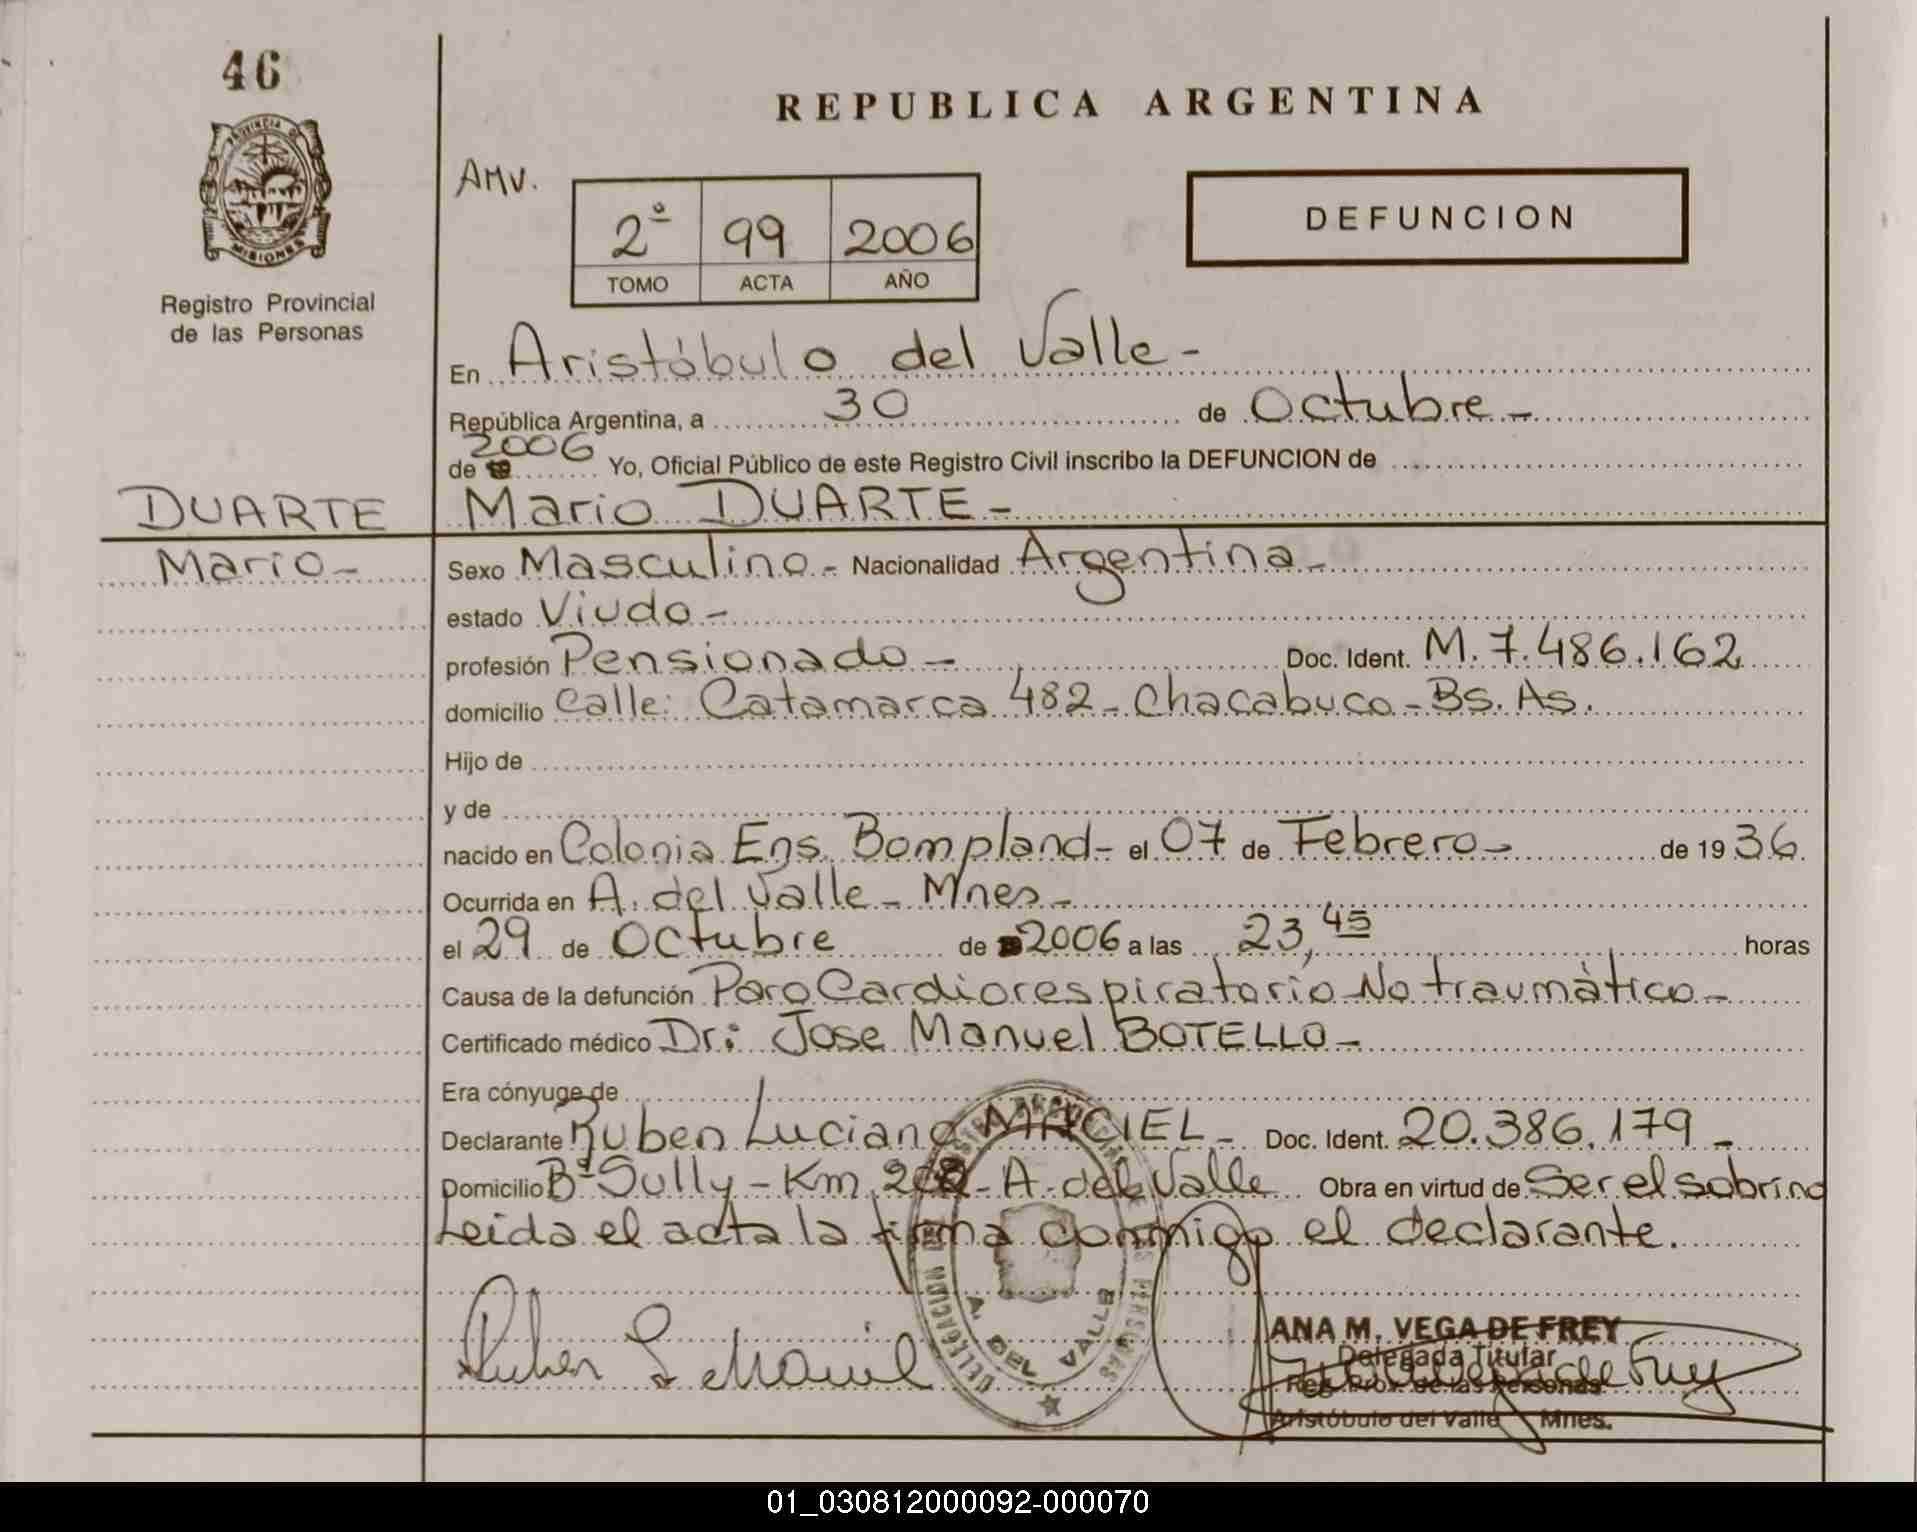 46
REPUBLICA ARGENTINA
PROVINCIA DE
MISIONES
Registro Provincial
de las Personas
AMV.
2º 99 2006
TOMO ACTA AÑO
DEFUNCION
En Aristóbulo del Valle -
República Argentina, a 30 de Octubre -
de 2006 Yo, Oficial Público de este Registro Civil inscribo la DEFUNCION de
DUARTE Mario DUARTE -
Mario - Sexo Masculino - Nacionalidad Argentina -
estado Viudo -
profesión Pensionado - Doc. Ident. M. 7.486.162
domicilio Calle: Catamarca 482 - Chacabuco - Bs. As.
Hijo de
y de
nacido en Colonia Ens. Bompland - el 07 de Febrero - de 1936.
Ocurrida en A. del Valle - Mnes -
el 29 de Octubre de 2006 a las 23,45 horas
Causa de la defunción Paro Cardiorespiratorio No traumàtico -
Certificado médico Dr: Jose Manuel BOTELLO -
Era cónyuge de
Declarante Ruben Luciano MACIEL - Doc. Ident. 20.386.179 -
Domicilio Bº Sully - Km - A. del Valle Obra en virtud de Ser el sobrino
Leida el acta la firma conmigo el declarante.
DELEGACION
A. DEL VALLE
Ruben L Maciel
ANA M. VEGA DE FREY
Delegada Titular
Reg. Prov. de las Personas
Aristóbulo del Valle Mnes.
01_030812000092-000070